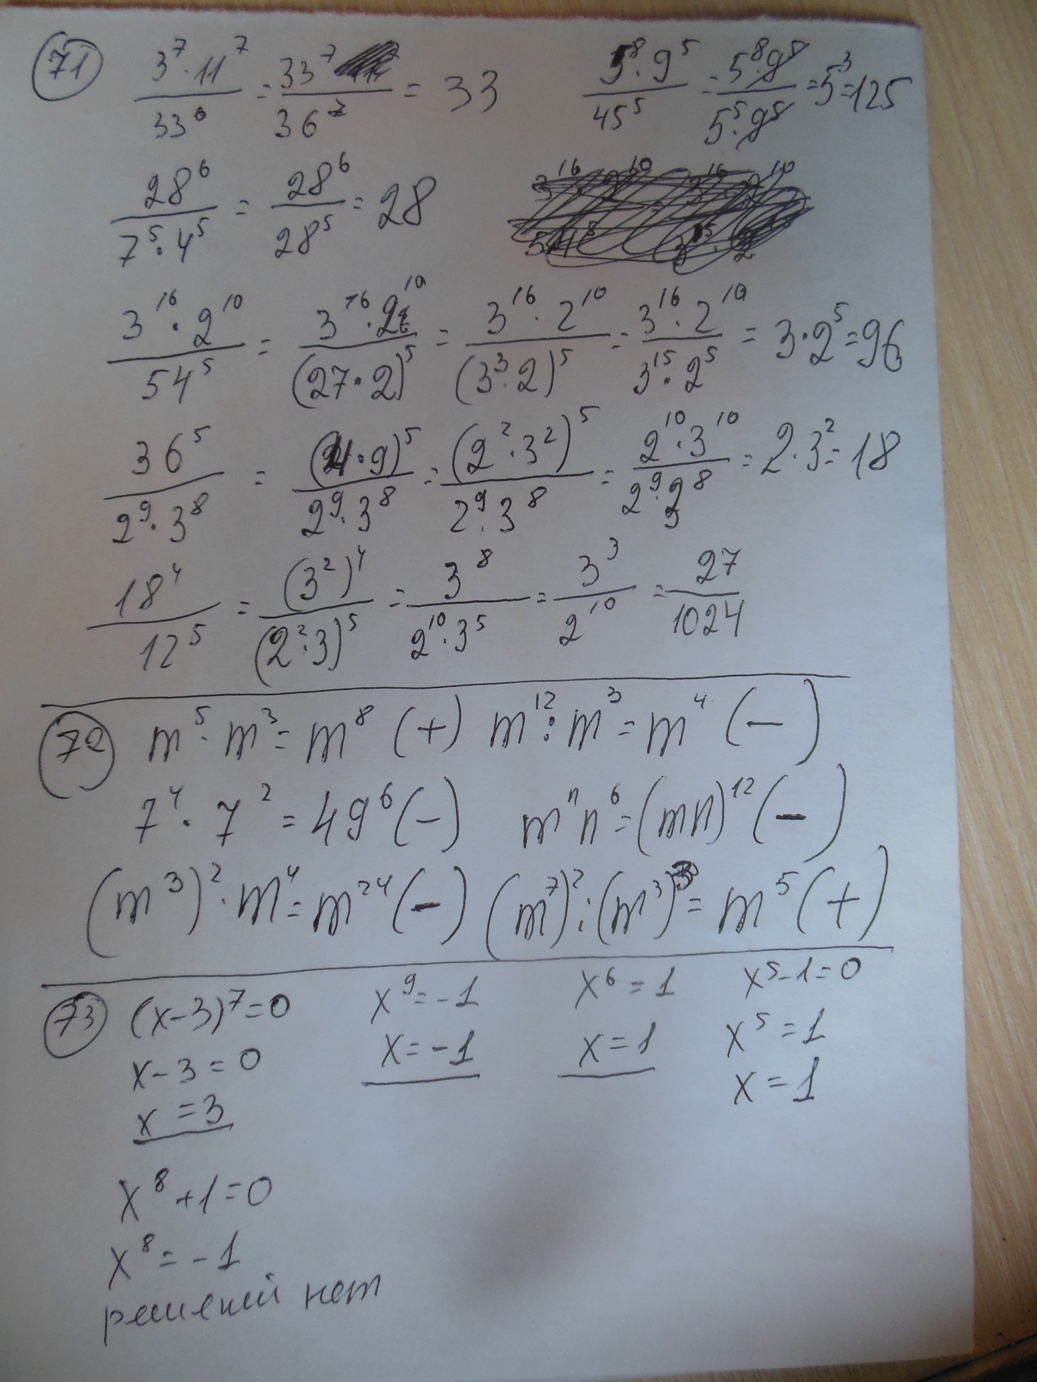 71 3⁷·11⁷/33⁶ = 33⁷/36⁷ = 33 5⁸·9⁵/45⁵ = 5⁸·9⁵/5⁵·9⁵ = 5³ = 125
28⁶/7⁵·4⁵ = 28⁶/28⁵ = 28
3¹⁶·2¹⁰/54⁵ = 3¹⁶·2¹⁰/(27·2)⁵ = 3¹⁶·2¹⁰/(3³·2)⁵ = 3¹⁶·2¹⁰/3¹⁵·2⁵ = 3·2⁵ = 96
36⁵/2⁹·3⁸ = (4·9)⁵/2⁹·3⁸ = (2²·3²)⁵/2⁹·3⁸ = 2¹⁰·3¹⁰/2⁹·3⁸ = 2·3² = 18
18⁴/12⁵ = (3²)⁴/(2²·3)⁵ = 3⁸/2¹⁰·3⁵ = 3³/2¹⁰ = 27/1024
72 m⁵·m³ = m⁸ (+) m¹²:m³ = m⁴ (−)
7⁴·7² = 49⁶ (−) mⁿn⁶ = (mn)¹² (−)
(m³)²·m⁴ = m²⁴ (−) (m⁷)²:(m³)³ = m⁵ (+)
73 (x-3)⁷=0 x⁹=-1 x⁶=1 x⁵-1=0
x-3=0 x=-1 x=1 x⁵=1
x=3 x=1
x⁸+1=0
x⁸=-1
решений нет